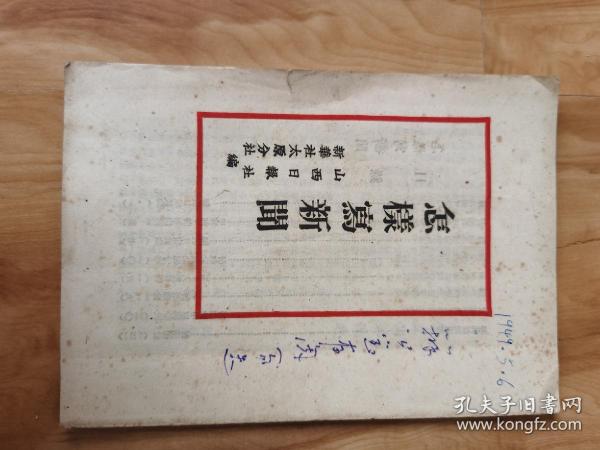 怎樣寫新聞
山西日報社
新華社太原分社
編
1949.5.6
孔夫子旧书网
www.kongfz.com